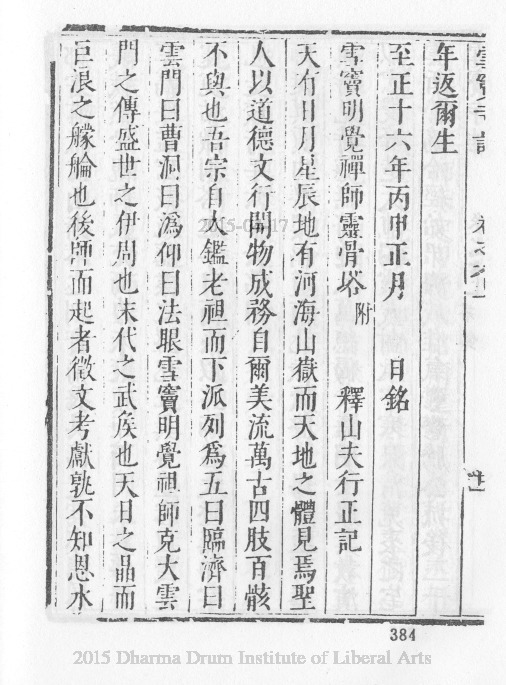 雪竇寺誌
年返爾生
至正十六年丙申正月　日銘
雪竇明覺禪師靈骨塔附　釋山夫行正記
天有日月星辰地有河海山嶽而天地之體見焉聖
人以道德文行開物成務自爾美流萬古四肢百骸
不與也吾宗自大鑑老祖而下派列爲五曰臨濟曰
雲門曰曹洞曰溈仰曰法眼雪竇明覺祖師克大雲
門之傳盛世之伊周也末代之武矦也天日之晶而
巨浪之艨艫也後師而起者徵文考獻孰不知恩水
384
2015 Dharma Drum Institute of Liberal Arts